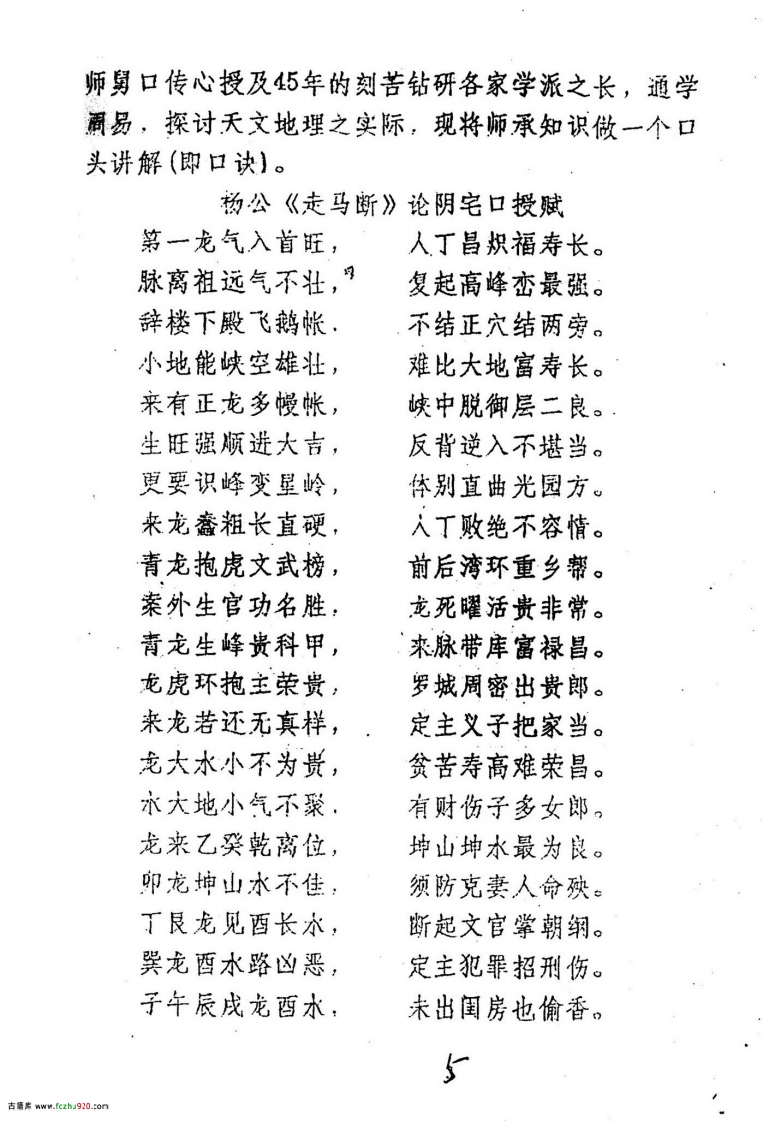 师舅口传心授及45年的刻苦钻研各家学派之长，通学
周易，探讨天文地理之实际，现将师承知识做一个口
头讲解(即口诀)。
杨公《走马断》论阴宅口授赋
第一龙气入首旺， 人丁昌炽福寿长。
脉离祖远气不壮， 复起高峰峦最强。
辞楼下殿飞鹅帐． 不结正穴结两旁。
小地能峡空雄壮， 难比大地富寿长。
来有正龙多幔帐， 峡中脱御层二良。
生旺强顺进大吉， 反背逆入不堪当。
更要识峰变星岭， 体别直曲光园方。
来龙蠢粗长直硬， 人丁败绝不容情。
青龙抱虎文武榜， 前后湾环重乡帮。
案外生官功名胜， 龙死曜活贵非常。
青龙生峰贵科甲， 来脉带库富禄昌。
龙虎环抱主荣贵， 罗城周密出贵郎。
来龙若还无真样， 定主义子把家当。
龙大水小不为贵， 贫苦寿高难荣昌。
水大地小气不聚． 有财伤子多女郎。
龙来乙癸乾离位， 坤山坤水最为良。
卯龙坤山水不佳， 须防克妻人命殃。
丁艮龙见酉长水， 断起文官掌朝纲。
巽龙酉水路凶恶， 定主犯罪招刑伤。
子午辰戌龙酉水， 未出闺房也偷香。
5
古籍库 www.fozhu920.com